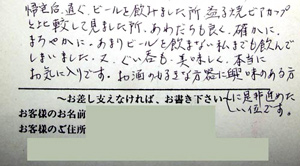 帰宅后、直ぐ、ビールを飲みました所 益子焼ビアカップ
と比較して見ました所、あわだちも良く、確かに、
まろやかに。あまりビールを飲まない私までも飲んで
しまいました。又、ぐい呑も、美味しく、本当に
お気に入りです。お酒のみすきな方器に興味のある方
に是非進めた
い位です。
〜お差し支えなければ、お書き下さい〜
お客様のお名前
お客様のご住所